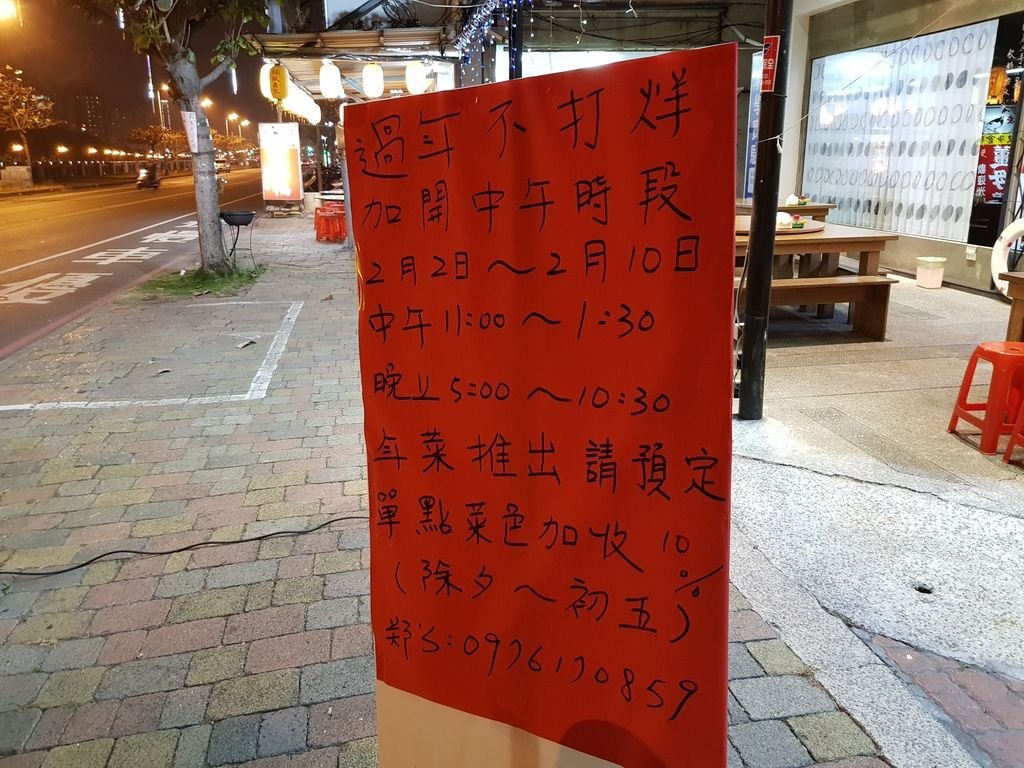 過年不打烊
加開中午時段
2月2日～2月10日
中午11:00～1:30
晚上5:00～10:30
年菜推出請預定
單點菜色加收10%
(除夕～初五)
鄭's:0976170859